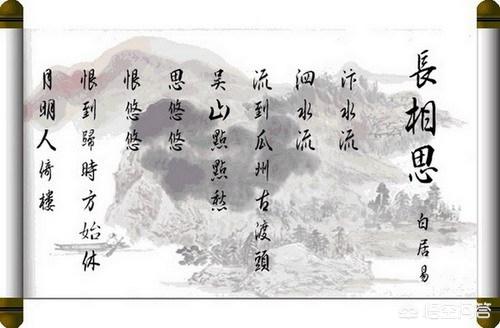 長相思
白居易
汴水流
泗水流
流到瓜州古渡頭
吴山點點愁
思悠悠
恨悠悠
恨到歸時方始休
月明人倚樓
悟空问答